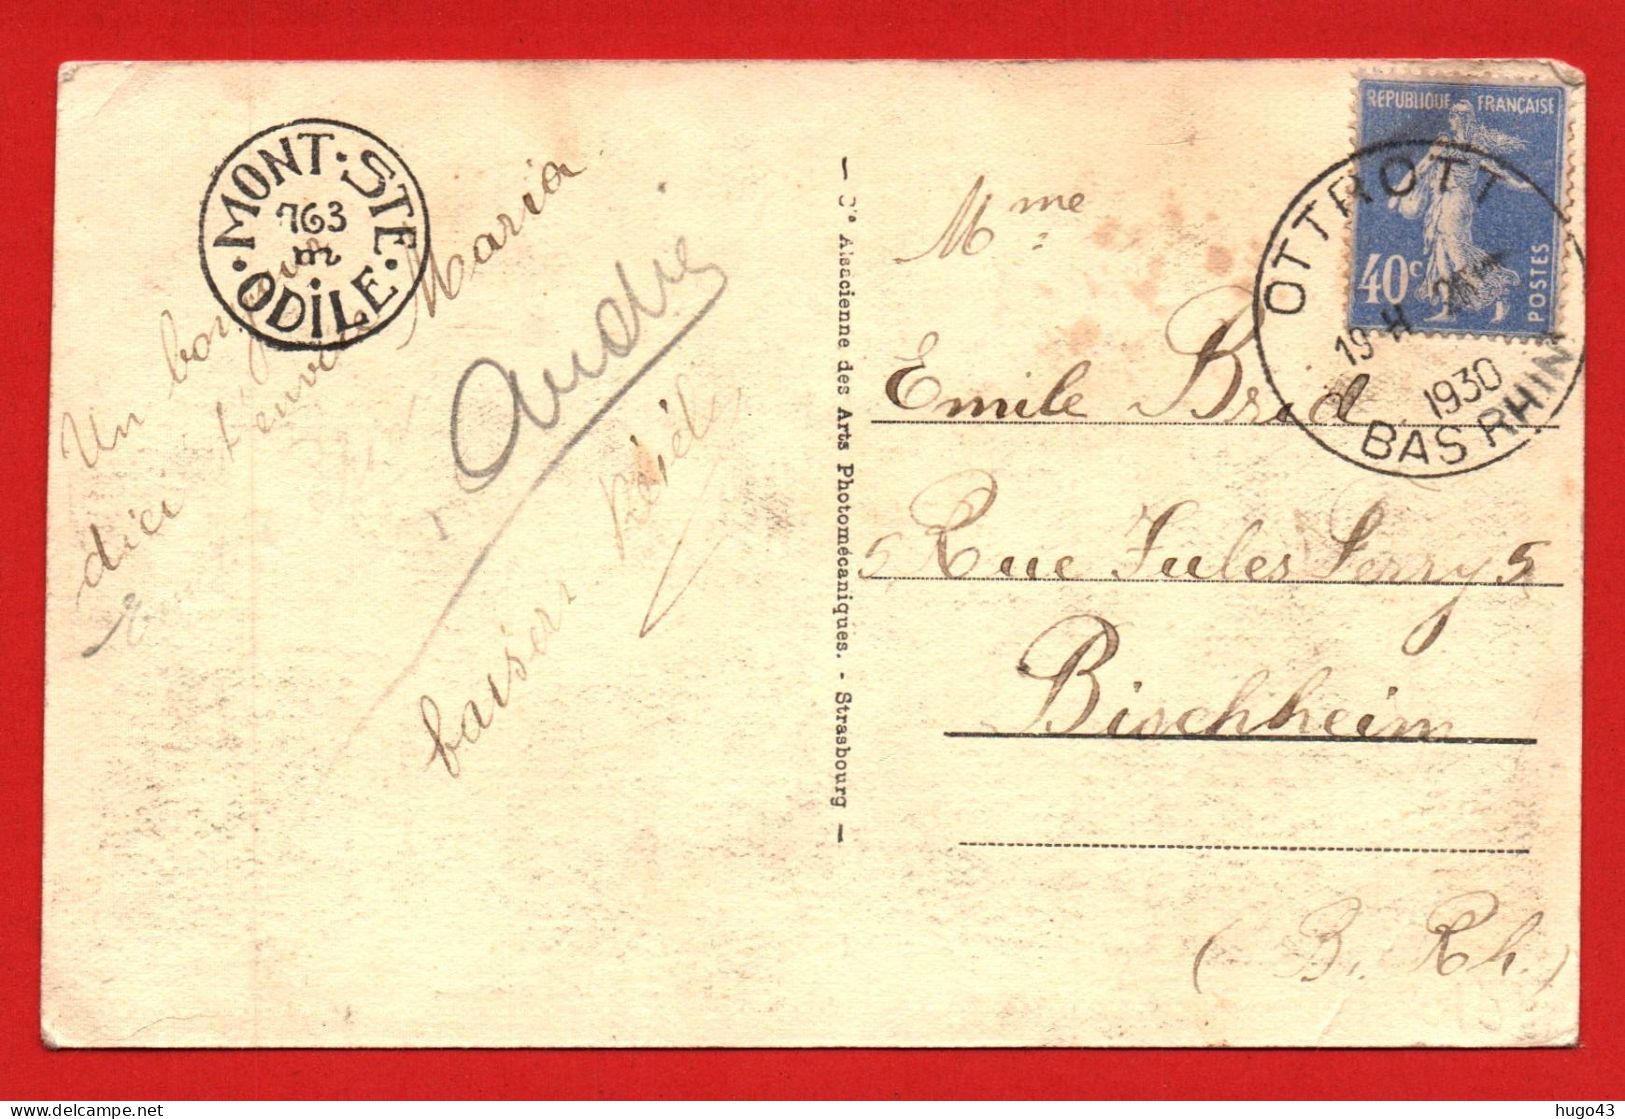 MONT·STE·ODILE·
763
m
Un bonjour
d'ici t'envoi Maria
André
baiser
— Cie Alsacienne des Arts Photomécaniques. - Strasbourg —
REPUBLIQUE FRANÇAISE
40c
POSTES
OTTROTT
19 H
1930
BAS RHIN
Mme
Emile Bried
5 Rue Jules Ferry 5
Bischheim
(B. Rh.)
hugo43
delcampe.net